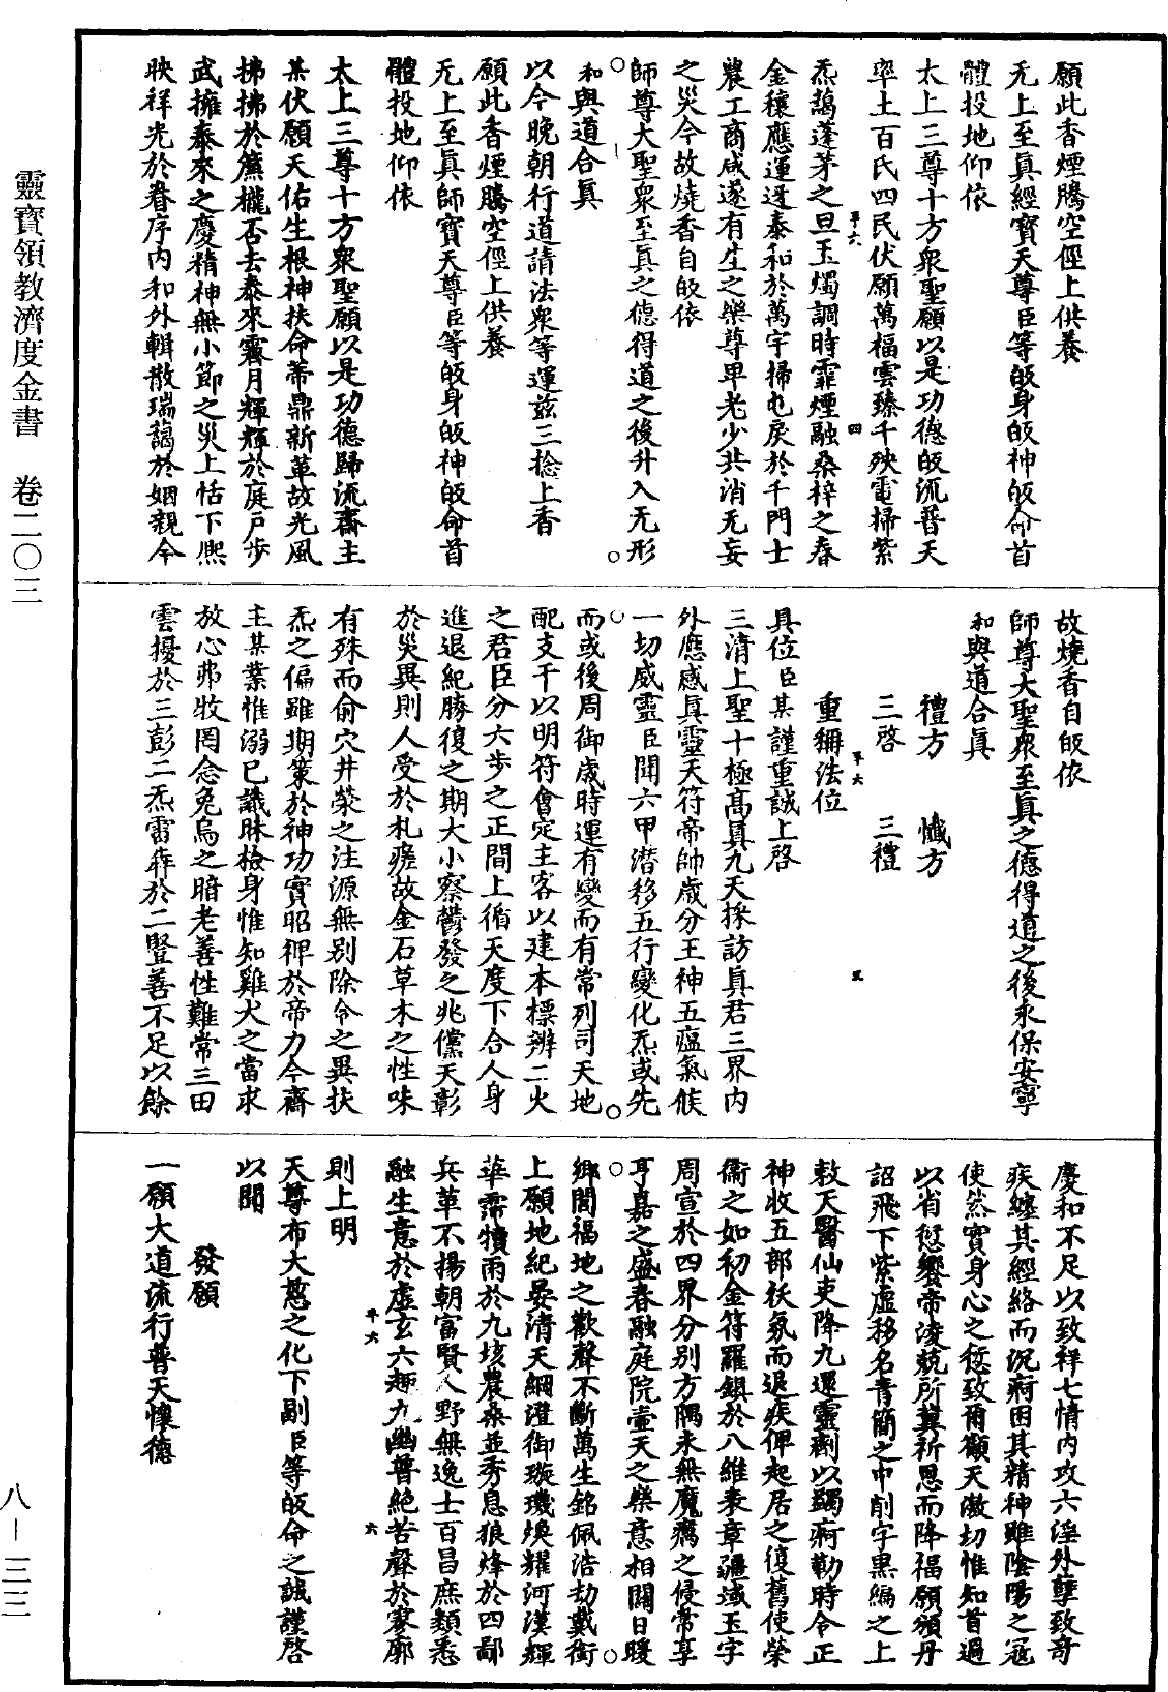 靈寶領教濟度金書　卷二〇三
願此香煙騰空徑上供養
无上至眞經寶天尊臣等皈身皈神皈命首
體投地仰依
太上三尊十方衆聖願以是功德皈流普天
率土百氏四民伏願萬福雲臻千殃電掃紫
炁藹蓬茅之旦玉燭調時霏煙融桑梓之春
金穰應運迓泰和於萬宇掃屯戾於千門士
農工商咸遂有生之樂尊卑老少共消无妄
之災今故燒香自皈依
師尊大聖衆至眞之德得道之後升入无形
和與道合眞
以今晚朝行道請法衆等運茲三捻上香
願此香煙騰空徑上供養
无上至眞師寶天尊臣等皈身皈神皈命首
體投地仰依
太上三尊十方衆聖願以是功德歸流齋主
某伏願天佑生根神扶命蒂鼎新革故光風
拂拂於簾櫳否去泰來霽月輝輝於庭戶步
武擁泰來之慶精神無小節之災上恬下熙
映祥光於眷序內和外輯散瑞藹於姻親今
故燒香自皈依
師尊大聖衆至眞之德得道之後永保安寧
和與道合眞
禮方　　懺方
三啓　　三禮
重稱法位
具位臣某謹重誠上啓
三清上聖十極高眞九天採訪眞君三界內
外應感眞靈天符帝帥歲分王神五瘟氣候
一切威靈臣聞六甲潛移五行變化炁或先
而或後周御歲時運有變而有常列司天地
配支干以明符會定主客以建本標辨二火
之君臣分六步之正間上循天度下合人身
進退紀勝復之期大小察鬱發之兆儻天彰
於災異則人受於札瘥故金石草木之性味
有殊而俞穴井滎之注源無別除令之異扶
炁之偏雖期策於神功實昭稗於帝力今齋
主某業惟溺已識昧檢身惟知雞犬之當求
放心弗收罔念兔烏之暗老善性難常三田
雲擾於三彭二炁雷犇於二豎善不足以餘
慶和不足以致祥七情內攻六淫外孽致奇
疾纏其經絡而沉痾困其精神雖陰陽之寇
使然實身心之愆致爾籲天激切惟知首過
以省愆饗帝淩兢所冀祈恩而降福願頒丹
詔飛下紫虛移名青簡之中削字黑編之上
敕天醫仙吏降九還靈劑以蠲痾勒時令正
神收五部祅氛而退疾俾起居之復舊使榮
衞之如初金符羅鎮於八維表章疆域玉字
周宣於四界分別方隅未無魔癘之侵常享
亨嘉之盛春融庭院壺天之樂意相關日暖
鄉閭福地之歡聲不斷萬生銘佩浩劫戴銜
上願地紀晏清天綱澄御璇璣煥耀河漢輝
華霈犢雨於九垓農桑並秀息狼烽於四鄙
兵革不揚朝富賢人野無逸士百昌庶類悉
融生意於虛玄六趣九幽普絕苦聲於寥廓
則上明
天尊布大慈之化下副臣等皈命之誠謹啓
以聞
發願
一願大道流行普天懷德
平六　四
平六　五
平六　六
八－三三